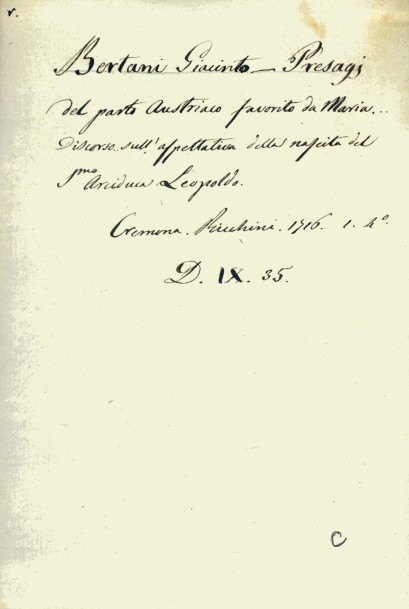 v.
Bertani Giacinto — Presagj
del parto Austriaco favorito da Maria...
Discorso sull' aspettativa della nascita del
Smo Arciduca Leopoldo.
Cremona. Ricchini. 1716. 1. 4º.
D. IX. 35.
C